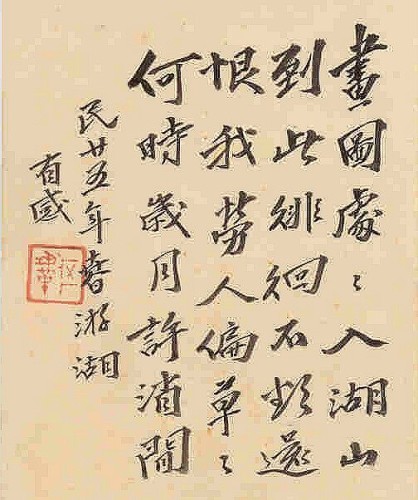 畫圖處〻入湖山
到此徘徊不還
恨我勞人偏草〻
何時歲月許消閒
民廿五年游湖
有感